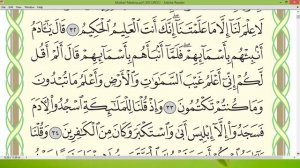 Mushaf-Madina.pdf (SECURED) - Adobe Reader
لَا عِلْمَ لَنَآ إِلَّا مَا عَلَّمْتَنَآ إِنَّكَ أَنتَ ٱلْعَلِيمُ ٱلْحَكِيمُ ٣٢ قَالَ يَٰٓـَٔادَمُ
أَنۢبِئْهُم بِأَسْمَآئِهِمْ فَلَمَّآ أَنۢبَأَهُم بِأَسْمَآئِهِمْ قَالَ أَلَمْ أَقُل
لَّكُمْ إِنِّىٓ أَعْلَمُ غَيْبَ ٱلسَّمَٰوَٰتِ وَٱلْأَرْضِ وَأَعْلَمُ مَا تُبْدُونَ
وَمَا كُنتُمْ تَكْتُمُونَ ٣٣ وَإِذْ قُلْنَا لِلْمَلَٰٓئِكَةِ ٱسْجُدُوا۟ لِـَٔادَمَ
فَسَجَدُوٓا۟ إِلَّآ إِبْلِيسَ أَبَىٰ وَٱسْتَكْبَرَ وَكَانَ مِنَ ٱلْكَٰفِرِينَ ٣٤ وَقُلْنَا